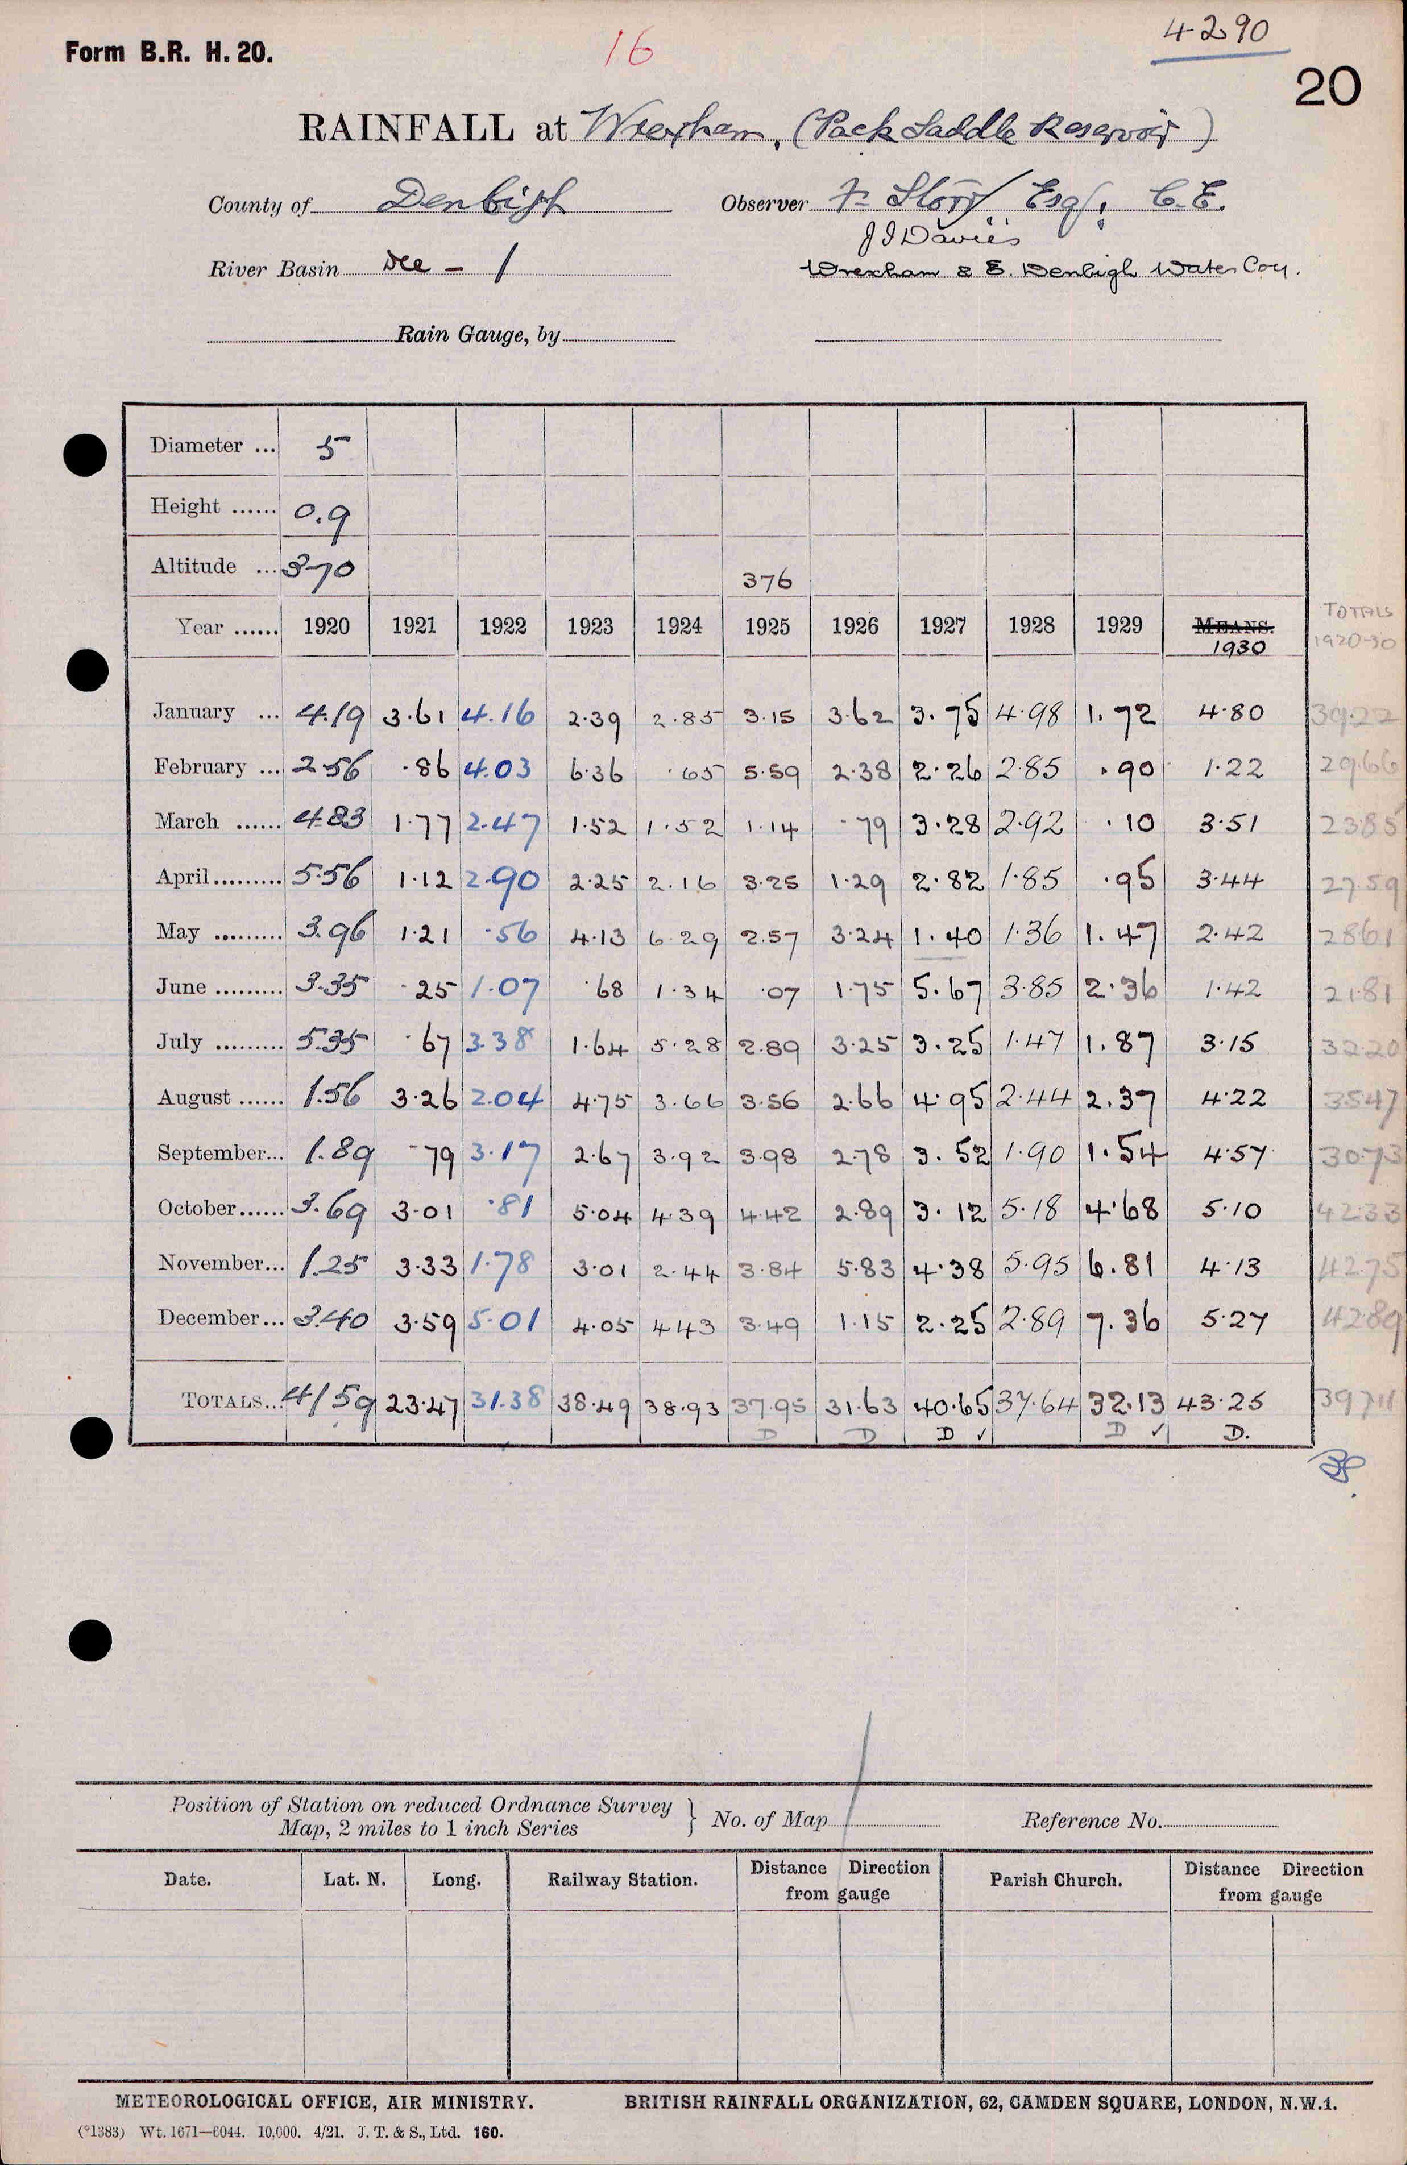 4290
Form B.R. H. 20.
16
20
RAINFALL at Wrexham, (Pack Saddle Reservoir)
County of Denbigh Observer F. Storr Esq. C.E.
J I Davies
River Basin Dee - 1 Wrexham & E. Denbigh Water Coy.
Rain Gauge, by
Diameter ... 5
Height ...... 0.9
Altitude ... 370 376
Year ...... 1920 1921 1922 1923 1924 1925 1926 1927 1928 1929 MEANS. 1930 TOTALS 1920-30
January ... 4.19 3.61 4.16 2.39 2.85 3.15 3.62 3.75 4.98 1.72 4.80 39.22
February ... 2.56 .86 4.03 6.36 .65 5.59 2.38 2.26 2.85 .90 1.22 29.66
March ...... 4.83 1.77 2.47 1.52 1.52 1.14 .79 3.28 2.92 .10 3.51 23.85
April ......... 5.56 1.12 2.90 2.25 2.16 3.25 1.29 2.82 1.85 .95 3.44 27.59
May ......... 3.96 1.21 .56 4.13 6.29 2.57 3.24 1.40 1.36 1.47 2.42 28.61
June ......... 3.35 .25 1.07 .68 1.34 .07 1.75 5.67 3.85 2.36 1.42 21.81
July ......... 5.35 .67 3.38 1.64 5.28 2.89 3.25 3.25 1.47 1.87 3.15 32.20
August ...... 1.56 3.26 2.04 4.75 3.66 3.56 2.66 4.95 2.44 2.37 4.22 35.47
September... 1.89 .79 3.17 2.67 3.92 3.98 2.78 3.52 1.90 1.54 4.57 30.73
October...... 3.69 3.01 .81 5.04 4.39 4.42 2.89 3.12 5.18 4.68 5.10 42.33
November... 1.25 3.33 1.78 3.01 2.44 3.84 5.83 4.38 5.95 6.81 4.13 42.75
December... 3.40 3.59 5.01 4.05 4.43 3.49 1.15 2.25 2.89 7.36 5.27 42.89
TOTALS... 41.59 23.47 31.38 38.49 38.93 37.95 31.63 40.65 37.64 32.13 43.25 397.11
D D D ✓ D ✓ D.
Position of Station on reduced Ordnance Survey
Map, 2 miles to 1 inch Series } No. of Map Reference No.
Date. Lat. N. Long. Railway Station. Distance Direction from gauge Parish Church. Distance Direction from gauge
METEOROLOGICAL OFFICE, AIR MINISTRY. BRITISH RAINFALL ORGANIZATION, 62, CAMDEN SQUARE, LONDON, N.W.1.
(*1383) Wt. 1671—6044. 10,000. 4/21. J. T. & S., Ltd. 160.